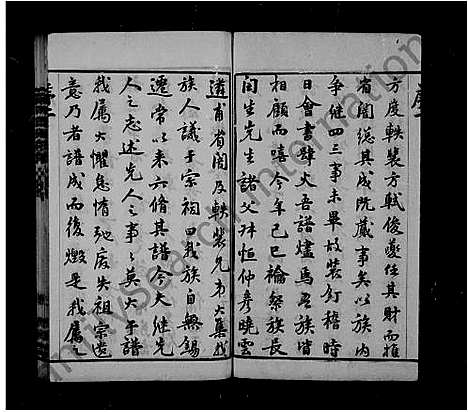 方度軼裝方軾俊夔任其財而推
省閣總其成既蕆事矣以族內
争继四三事未畢故裝釘稽時
日會書肆火吾譜燼焉吾族皆
相顧而嘻今年己巳禴祭族長
閏生先生諸父珎恒仲彥曉雲
遵甫省閣及軼裝兄弟大集我
族人議于宗祠曰我族自無錫
遷常以来六修其譜今大继先
人之志述先人之事之莫大于譜
我属大懼怠惰弛废失祖宗遺
意乃者譜成而後燬是我属之